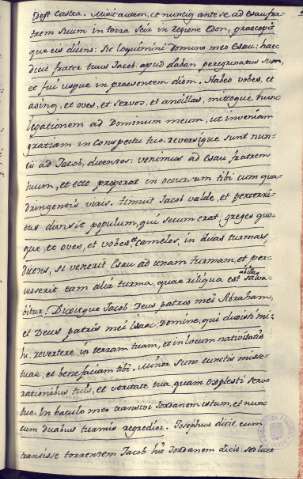 Dest Castra. Misit autem, et nuncios ante se, ad Esau fra-
trem suum in terra Seir in regione Edom, praecepit-
que eis dicens. Sic loquimini Domino meo Esau: haec
dicit frater tuus Jacob: apud Laban peregrinatus sum,
et fui usque in praesentem diem. Habeo boves, et
asinos, et oves, et servos, et ancillas, mittoque nunc
legationem ad Dominum meum, ut inveniam
gratiam in conspectu tuo. reversique sunt nun-
cii ad Jacob, dicentes: venimus ad Esau fratrem
tuum, et ecce properat in occursum tibi cum qua-
dringentis viris. timuit Jacob valde, et perterri-
tus divisit populum, qui secum erat, greges quo-
que, et oves, et boves, et camelos, in duas turmas
dicens, si venerit Esau ad unam turmam, et per-
cusserit eam alia turma, quae reliqua est salva-
bitur. Dixitque Jacob Deus patris mei Abraham,
et Deus patris mei Isaac Domine, qui dixisti mi-
hi, revertere in terram tuam, et in locum nativitatis
tuae, et benefaciam tibi. Minor sum cunctis mise-
rationibus tuis, et veritate tua quam explesti servo
tuo. In baculo meo transivi Jordanem istum, et nunc
cum duabus turmis regredior. Josephus dicit cum
transisse torrentem Jacob hic Jordanem dicit sed